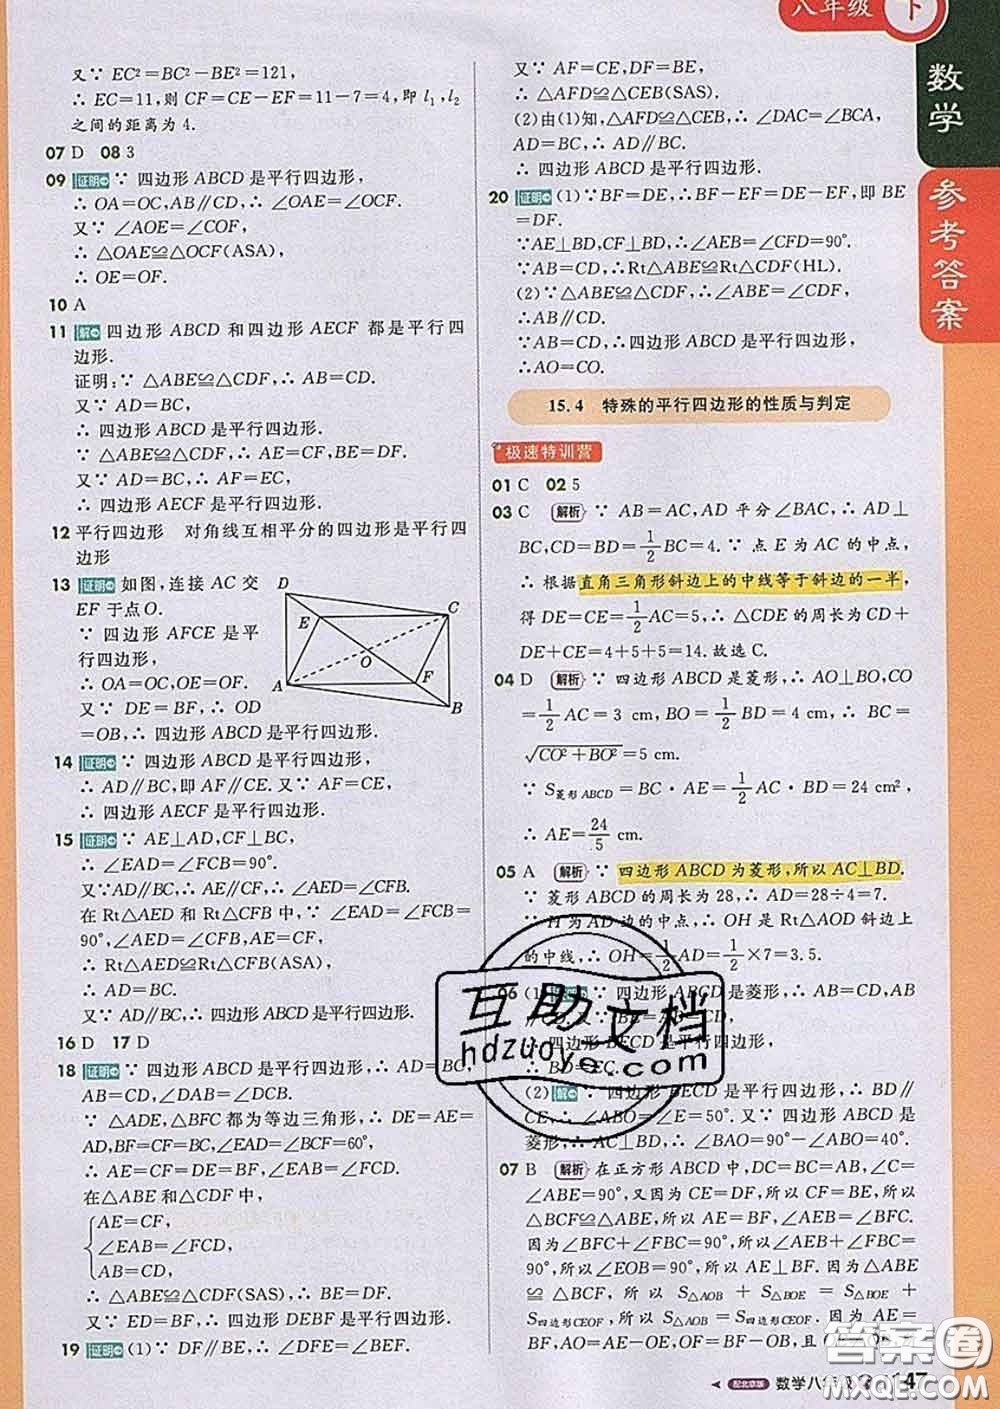 八年级 下
数学
参考答案
又∵ EC²=BC²-BE²=121,
∴ EC=11,则 CF=CE-EF=11-7=4,即 l₁,l₂
之间的距离为 4.
07 D 08 3
09 证明 ∵ 四边形 ABCD 是平行四边形,
∴ OA=OC,AB∥CD,∴ ∠OAE=∠OCF.
又∵ ∠AOE=∠COF,
∴ △OAE≌△OCF(ASA),
∴ OE=OF.
10 A
11 解 四边形 ABCD 和四边形 AECF 都是平行四
边形.
证明:∵ △ABE≌△CDF,∴ AB=CD.
又∵ AD=BC,
∴ 四边形 ABCD 是平行四边形.
∵ △ABE≌△CDF,∴ AE=CF,BE=DF.
又∵ AD=BC,∴ AF=EC,
∴ 四边形 AECF 是平行四边形.
12 平行四边形 对角线互相平分的四边形是平行四
边形
13 证明 如图,连接 AC 交
EF 于点O.
∵ 四边形 AFCE 是平
行四边形,
∴ OA=OC,OE=OF.
又∵ DE=BF,∴ OD
=OB,∴ 四边形 ABCD 是平行四边形.
D
C
E
O
A
F
B
14 证明 ∵ 四边形 ABCD 是平行四边形,
∴ AD∥BC,即 AF∥CE.又∵ AF=CE,
∴ 四边形 AECF 是平行四边形.
15 证明 ∵ AE⊥AD,CF⊥BC,
∴ ∠EAD=∠FCB=90°.
又∵AD∥BC,∴ ∠ADE=∠CBF.
在 Rt△AED 和 Rt△CFB 中,∵ ∠EAD=∠FCB=
90°,∠AED=∠CFB,AE=CF,
∴ Rt△AED≌Rt△CFB(ASA),
∴ AD=BC.
又∵ AD∥BC,∴ 四边形 ABCD 是平行四边形.
16 D 17 D
18 证明 ∵ 四边形 ABCD 是平行四边形,∴ AD=BC,
AB=CD,∠DAB=∠DCB.
∵ △ADE,△BFC 都为等边三角形,∴ DE=AE=
AD,BF=CF=BC,∠DAE=∠BCF=60°,
∴ AE=CF=DE=BF,∠EAB=∠FCD.
在△ABE 和△CDF 中,
AE=CF,
∠EAB=∠FCD,
AB=CD,
∴ △ABE≌△CDF(SAS),∴ BE=DF.
又∵ ED=BF,∴ 四边形 DEBF 是平行四边形.
19 证明 (1)∵ DF∥BE,∴ ∠DFE=∠BEF.
又∵ AF=CE,DF=BE,
∴ △AFD≌△CEB(SAS).
(2)由(1)知,△AFD≌△CEB,∴ ∠DAC=∠BCA,
AD=BC,∴ AD∥BC.
∴ 四边形 ABCD 是平行四边形.
20 证明 (1)∵BF=DE,∴BF-EF=DE-EF,即 BE
=DF.
∵AE⊥BD,CF⊥BD,∴∠AEB=∠CFD=90°.
∵AB=CD,∴Rt△ABE≌Rt△CDF(HL).
(2)∵△ABE≌△CDF,∴∠ABE=∠CDF,
∴AB∥CD.
∵AB=CD,∴四边形 ABCD 是平行四边形,
∴AO=CO.
15.4 特殊的平行四边形的性质与判定
极速特训营
01 C 02 5
03 C 解析 ∵ AB=AC,AD 平分∠BAC,∴ AD⊥
BC,CD=BD=1/2BC=4.∵ 点 E 为 AC 的中点,
∴ 根据直角三角形斜边上的中线等于斜边的一半,
得 DE=CE=1/2AC=5,∴ △CDE 的周长为 CD+
DE+CE=4+5+5=14.故选C.
04 D 解析 ∵ 四边形 ABCD 是菱形,∴ AO⊥BO,CO
=1/2AC=3 cm,BO=1/2BD=4 cm,∴ BC=
√(CO²+BO²)=5 cm.
∵ S菱形ABCD=BC·AE=1/2AC·BD=24 cm²,
∴ AE=24/5 cm.
05 A 解析 ∵ 四边形 ABCD 为菱形,所以 AC⊥BD.
∵ 菱形 ABCD 的周长为 28,∴ AD=28÷4=7.
∵ H 为 AD 边的中点,∴ OH 是 Rt△AOD 斜边上
的中线,∴ OH=1/2AD=1/2×7=3.5.
06 (1) 证明 ∵ 四边形 ABCD 是菱形,∴ AB=CD,AB
∥CD.
∴ 四边形 BECD 是平行四边形,
∴ BD=EC.
(2) 解 ∵ 四边形 BECD 是平行四边形,∴ BD∥
CE,∴ ∠ABO=∠E=50°.又∵ 四边形 ABCD 是
菱形,∴ AC⊥BD,∴ ∠BAO=90°-∠ABO=40°.
07 B 解析 在正方形 ABCD 中,DC=BC=AB,∠C=
∠ABE=90°,又因为 CE=DF,所以 CF=BE,所以
△BCF≌△ABE,所以 AE=BF,∠AEB=∠BFC.
因为∠BFC+∠FBC=90°,所以∠AEB+∠FBC=
90°,所以∠EOB=90°,所以 AE⊥BF.因为△ABE
≌△BCF,所以 S△AOB+S△BOE=S△BOE+
S四边形CEOF,所以 S△AOB=S四边形CEOF.因为 AE=
BF,AO=AE-OE,OF=BF-OB,且 OE
配北京版 数学八年级 下 147
互助文档
hdzuoye.com
答案圈
MXQE.COM